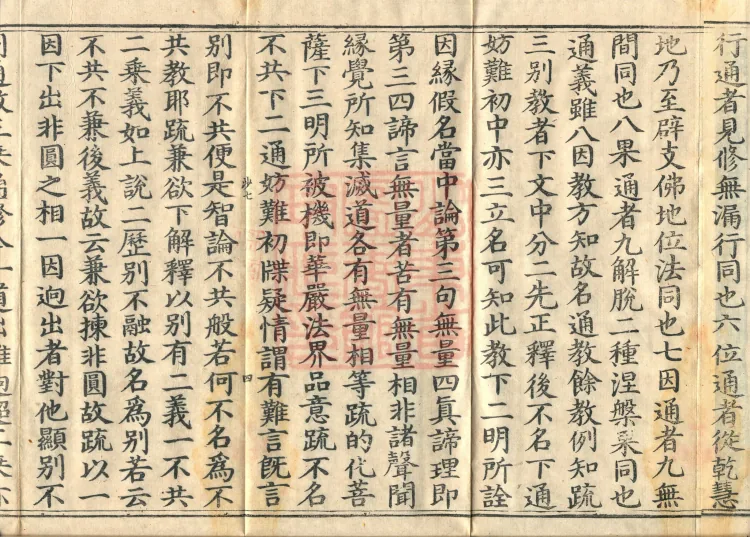 行通者見修無漏行同也六位通者從乾慧
地乃至辟支佛地位法同也七因通者九無
間同也八果通者九解脫二種涅槃果同也
通義雖八因教方知故名通教餘教例知疏
三別教者下文中分二先正釋後不名下通
妨難初中亦三立名可知此教下二明所詮
因緣假名當中論第三句無量四真諦理即
第三四諦言無量者苦有無量相非諸聲聞
緣覺所知集滅道各有無量相等疏的化菩
薩下三明所被機即華嚴法界品意疏不名
不共下二通妨難初牒疑情謂有難言既言
鈔七
四
別即不共便是智論不共般若何不名爲不
共教耶疏兼欲下解釋以別有二義一不共
二乘義如上說二歷別不融故名爲別若云
不共不兼後義故云兼欲揀非圓故疏以一
因下出非圓之相一因逈出者對他顯別不